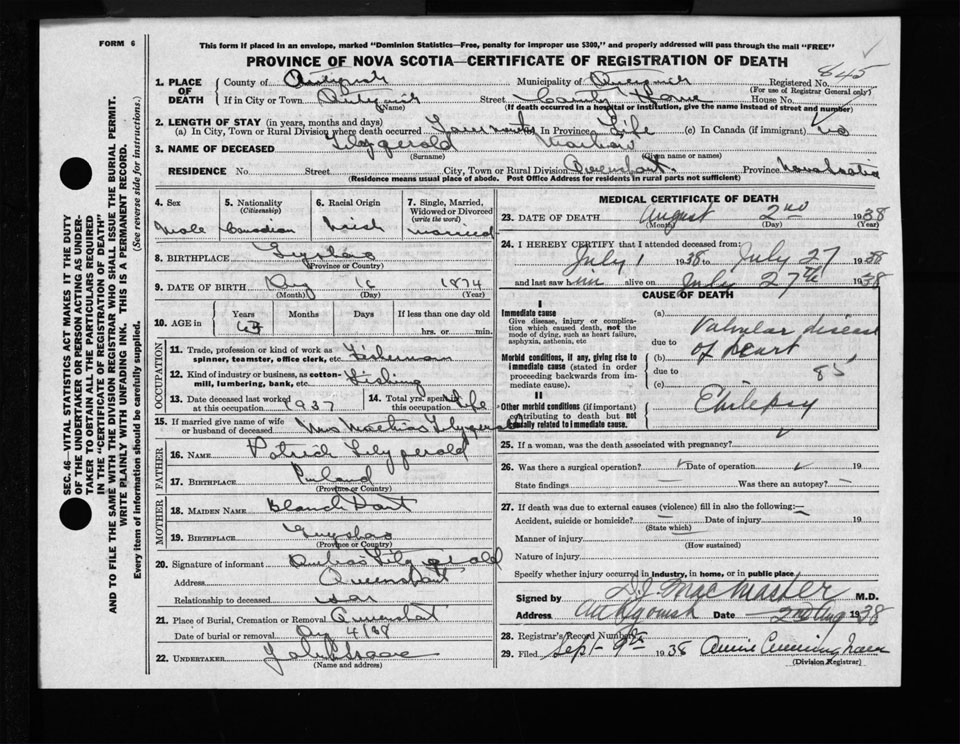 FORM 6
This form if placed in an envelope, marked "Dominion Statistics—Free, penalty for improper use $300," and properly addressed will pass through the mail "FREE"
PROVINCE OF NOVA SCOTIA—CERTIFICATE OF REGISTRATION OF DEATH
1. PLACE OF DEATH
County of Antigonish Municipality of Registered No. 845
(For use of Registrar General only)
If in City or Town (Name) Street County Home House No.
(If death occurred in a hospital or institution, give the name instead of street and number)
2. LENGTH OF STAY (in years, months and days)
(a) In City, Town or Rural Division where death occurred (b) in Province Life (c) In Canada (if immigrant) no
3. NAME OF DECEASED Fitzgerald
(Surname) (Given name or names)
RESIDENCE No. Street City, Town or Rural Division Province Nova Scotia
(Residence means usual place of abode. Post Office Address for residents in rural parts not sufficient)
4. Sex Male
5. Nationality (Citizenship) Canadian
6. Racial Origin Irish
7. Single, Married, Widowed or Divorced (write the word) Married
8. BIRTHPLACE Guysboro
(Province or Country)
9. DATE OF BIRTH Aug 1874
(Month) (Day) (Year)
10. AGE in Years Months Days If less than one day old
hrs. or min.
OCCUPATION
11. Trade, profession or kind of work as spinner, teamster, office clerk, etc. Fisherman
12. Kind of industry or business, as cotton-mill, lumbering, bank, etc. Fishing
13. Date deceased last worked at this occupation 1937
14. Total yrs. spent in this occupation Life
15. If married give name of wife or husband of deceased Mrs Fitzgerald
FATHER
16. NAME Patrick Fitzgerald
17. BIRTHPLACE Ireland
(Province or Country)
MOTHER
18. MAIDEN NAME Hart
19. BIRTHPLACE Guysboro
(Province or Country)
20. Signature of informant Fitzgerald
Address Queensport
Relationship to deceased son
21. Place of Burial, Cremation or Removal Queensport
Date of burial or removal Aug 4/38
22. UNDERTAKER
(Name and address)
MEDICAL CERTIFICATE OF DEATH
23. DATE OF DEATH August 2nd 1938
(Month) (Day) (Year)
24. I HEREBY CERTIFY that I attended deceased from:
July 1 1938 to July 27 1938
and last saw him alive on July 27th 1938
CAUSE OF DEATH
I
Immediate cause
Give disease, injury or complication which caused death, not the mode of dying, such as heart failure, asphyxia, asthenia, etc
Morbid conditions, if any, giving rise to immediate cause (stated in order proceeding backwards from immediate cause).
II
Other morbid conditions (if important) contributing to death but not causally related to immediate cause.
(a) Valvular disease
due to of heart
(b)
due to 85
(c)
Epilepsy
25. If a woman, was the death associated with pregnancy?
26. Was there a surgical operation? Date of operation 19
State findings Was there an autopsy?
27. If death was due to external causes (violence) fill in also the following:
Accident, suicide or homicide? Date of injury 19
(State which)
Manner of injury
(How sustained)
Nature of injury
Specify whether injury occurred in industry, in home, or in public place
Signed by MacMaster M.D.
Address Antigonish Date 2nd Aug 1938
28. Registrar's Record Number
29. Filed Sept 9th 1938 Annie Cunningham
(Division Registrar)
SEC. 46—VITAL STATISTICS ACT MAKES IT THE DUTY
OF THE UNDERTAKER OR PERSON ACTING AS UNDERTAKER TO OBTAIN ALL THE PARTICULARS REQUIRED
IN THE "CERTIFICATE OF REGISTRATION OF DEATH"
AND TO FILE THE SAME WITH THE DIVISION REGISTRAR WHO SHALL ISSUE THE BURIAL PERMIT.
WRITE PLAINLY WITH UNFADING INK. THIS IS A PERMANENT RECORD.
Every item of information should be carefully supplied. (See reverse side for instructions.)